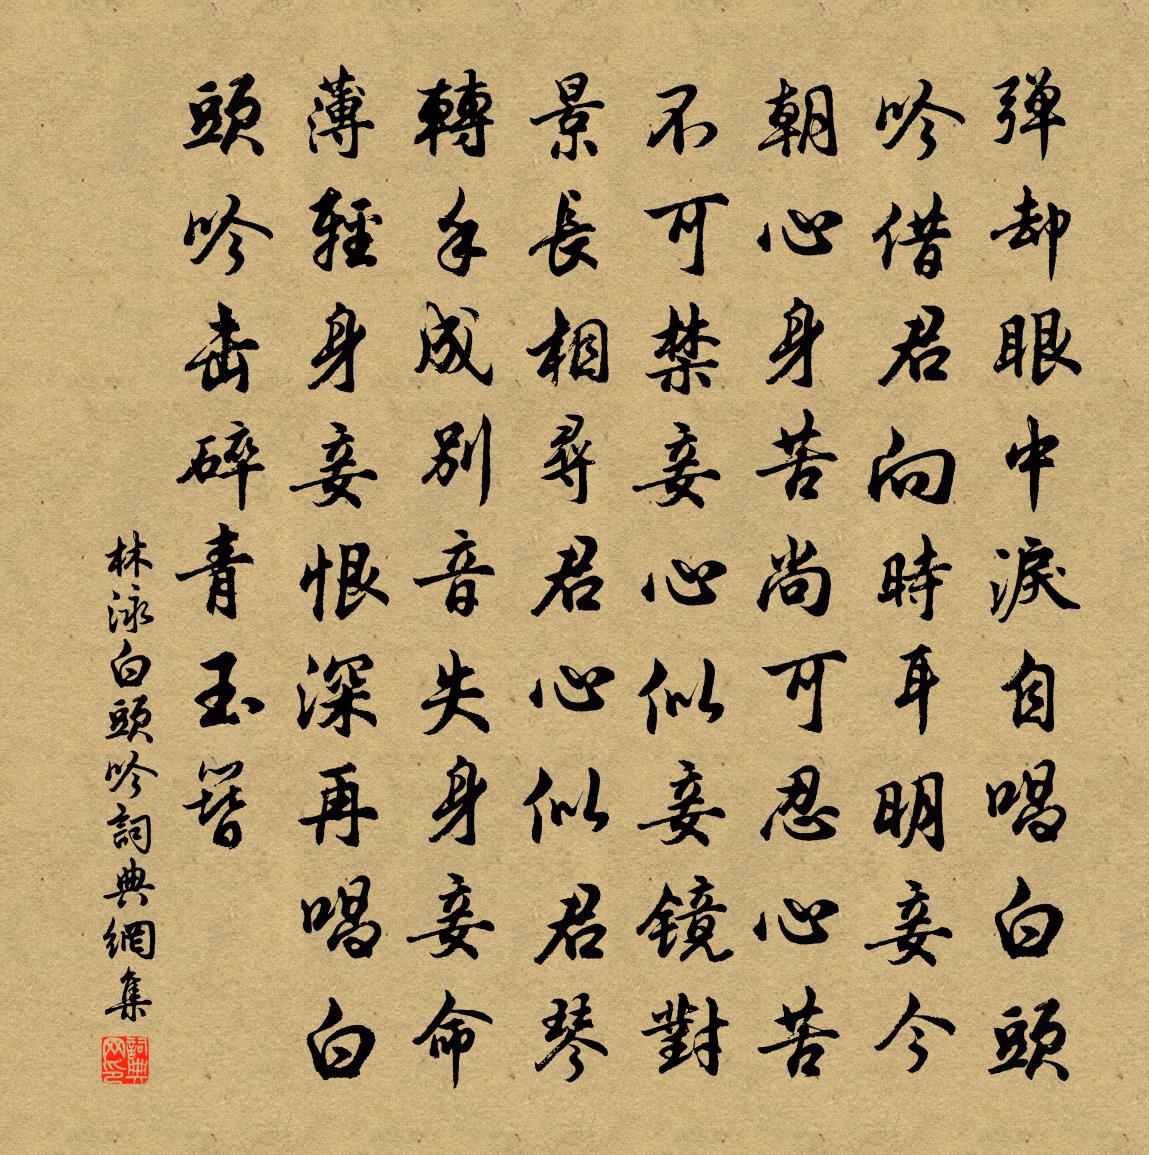 弹却眼中淚自唱白頭
吟借君向時耳明妾今
朝心身苦尚可忍心苦
不可禁妾心似妾镜對
景長相尋君心似君琴
轉手成別音失身妾命
薄輕身妾恨深再唱白
頭吟击碎青玉簪
林泳白頭吟詞典網集
詞典网印